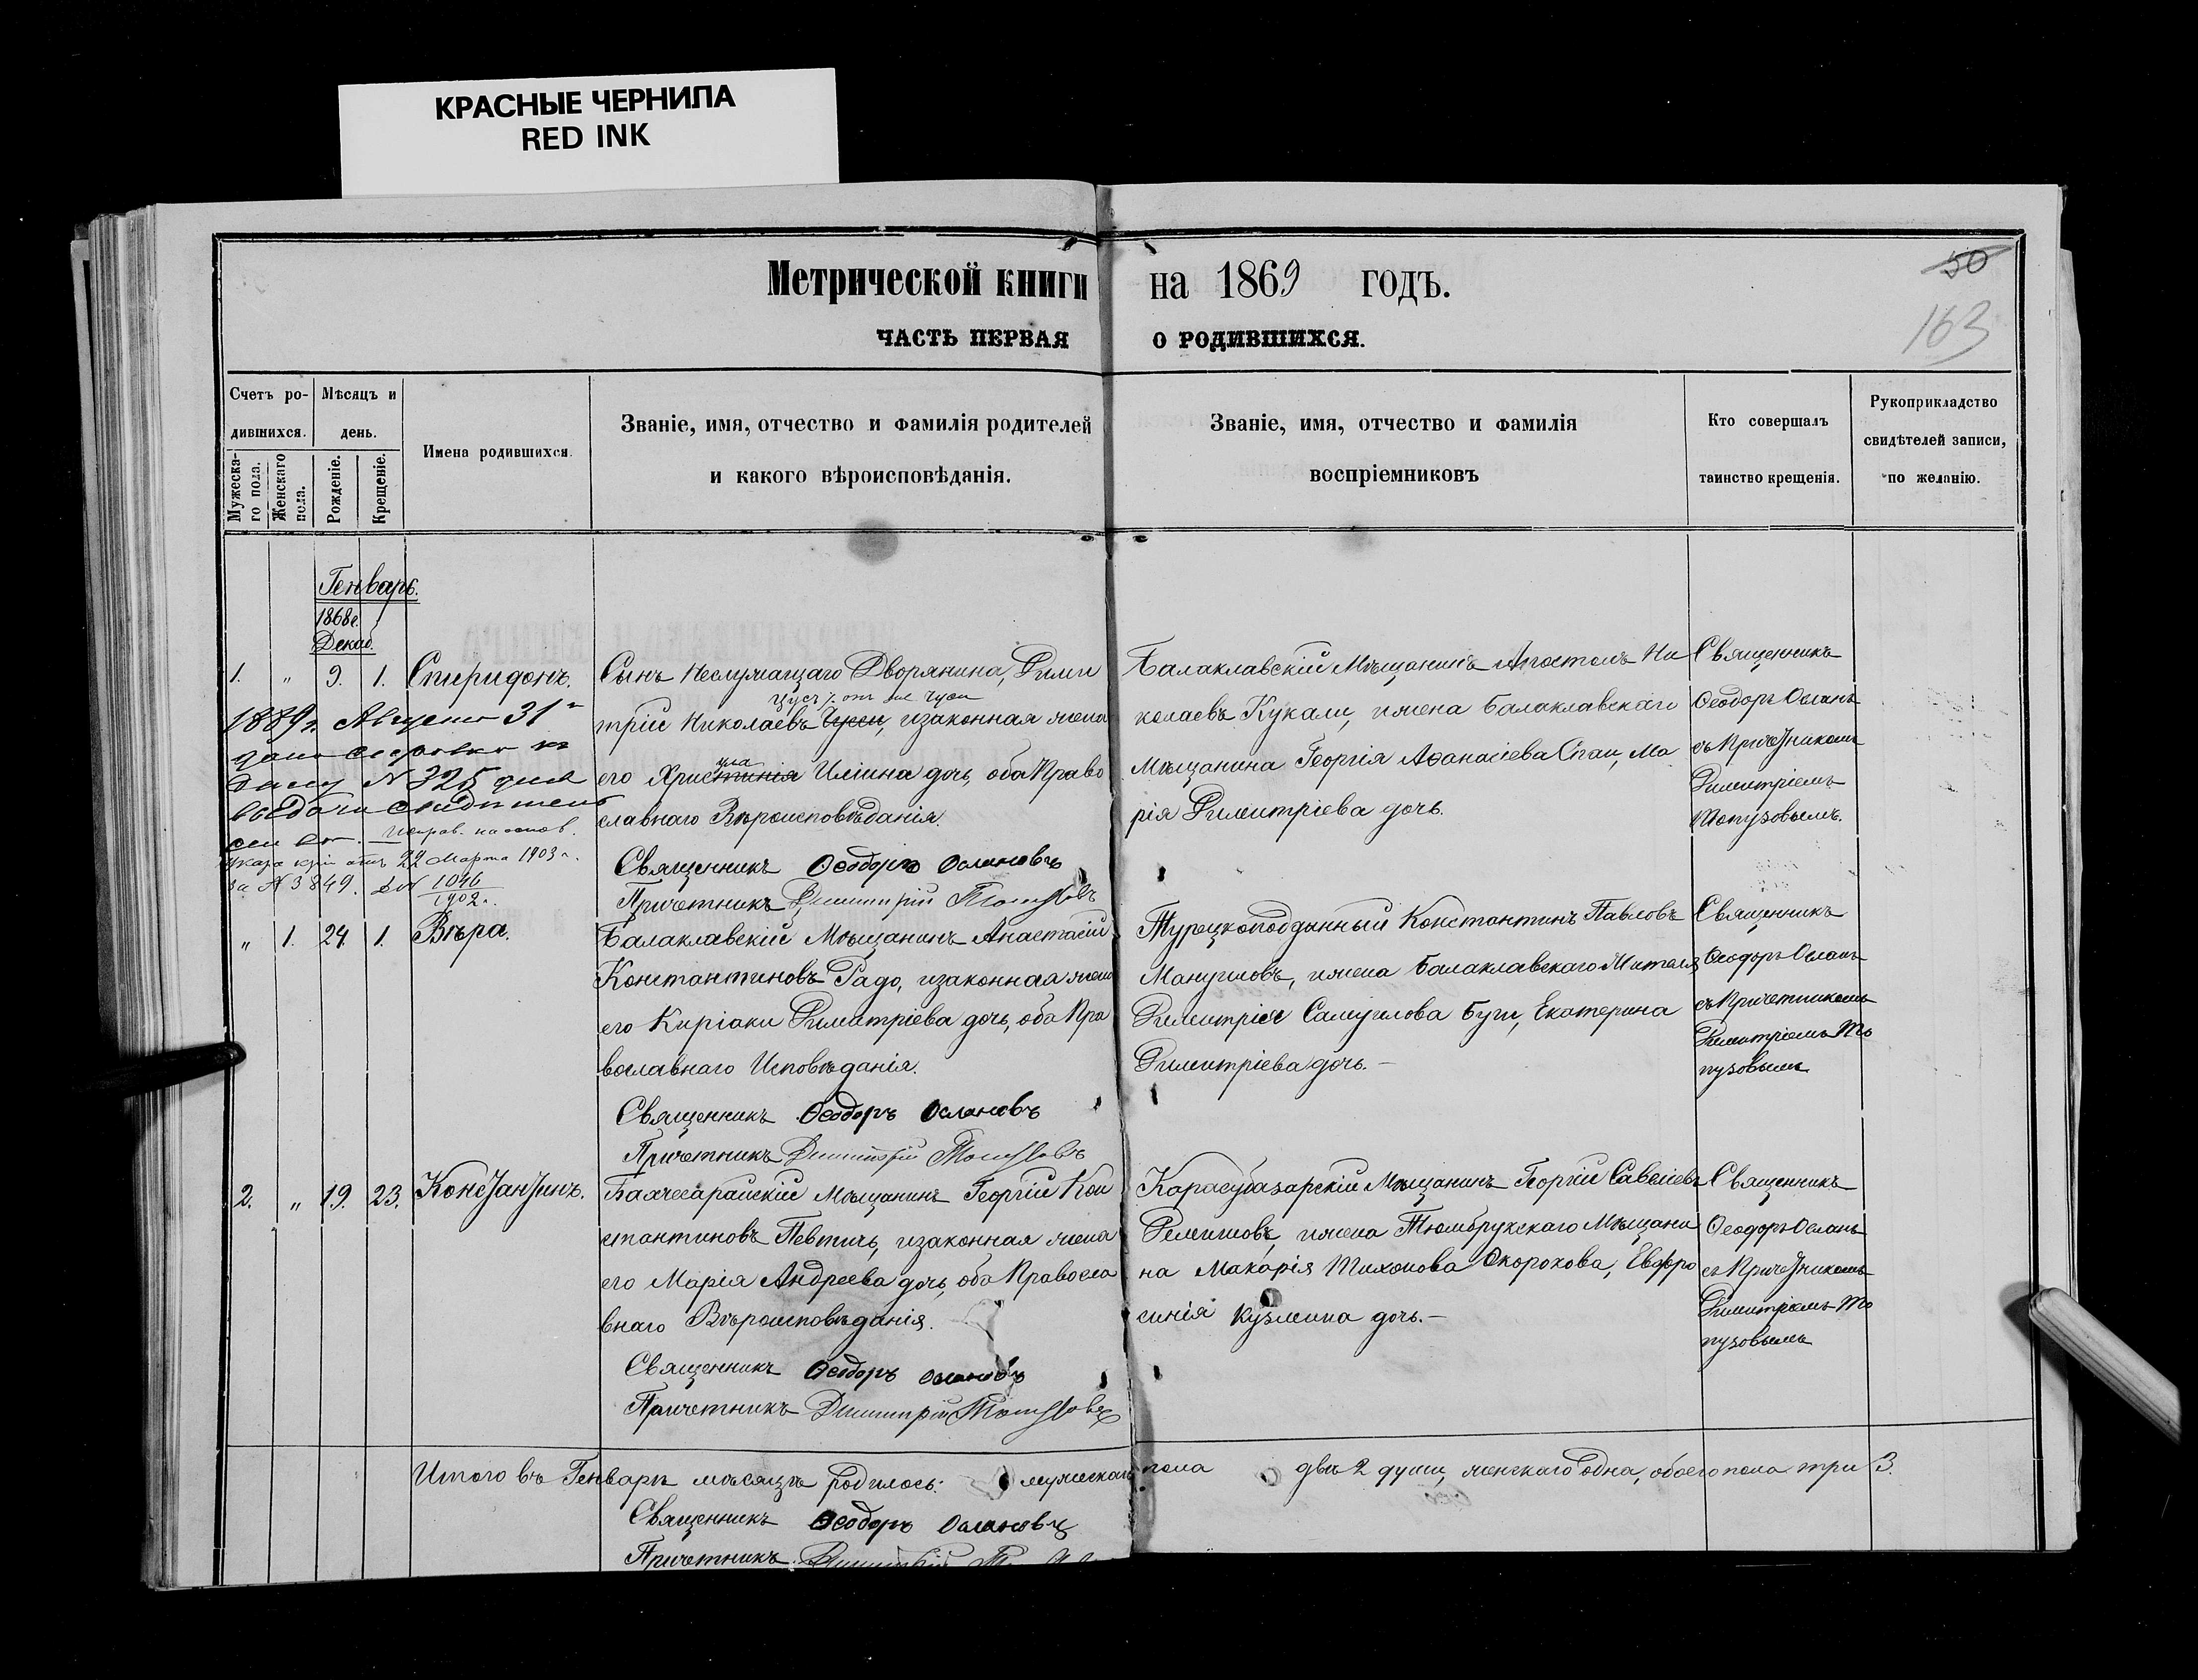 КРАСНЫЕ ЧЕРНИЛА
RED INK
Метрической книги на 1869 годъ.
50
163
ЧАСТЬ ПЕРВАЯ О РОДИВШИХСЯ.
Счетъ ро-
дившихся.
Мужеска-
го пола.
Женскаго
пола.
Мѣсяцъ и
день.
Рожденіе.
Крещеніе.
Имена родившихся.
Званіе, имя, отчество и фамилія родителей
и какого вѣроисповѣданія.
Званіе, имя, отчество и фамилія
воспріемниковъ
Кто совершалъ
таинство крещенія.
Рукоприкладство
свидѣтелей записи,
по желанію.
Генварь.
1868г.
Декаб.
1. " 9. 1. Спиридонъ.
Сынъ Неслужащаго Дворянина, Дими
трій Николаевъ Чуси, изаконная жена
его Христинія Иліина дочь, оба Право
славнаго Вѣроисповѣданія.
Священникъ Ѳеодоръ Ослановъ
Причетникъ Димитрій Топузовъ
Балаклавскій Мѣщанинъ Апостолъ Ни
колаевъ Кукали, ижена Балаклавскаго
Мѣщанина Георгія Аѳанасіева Спаи, Ма
рія Димитріева дочь.
Священникъ
Ѳеодоръ Осланъ
съ Причетникомъ
Димитріемъ
Топузовымъ.
1889 г. Августа 31
№ 325
Исправ. на основ.
указа 22 Марта 1903 г.
за № 3849. 1046
1902 г.
" 1. 24. 1. Вѣра.
Балаклавскій Мѣщанинъ Анастасій
Константиновъ Радо, изаконная жена
его Киріаки Димитріева дочь, оба Пра
вославнаго Исповѣданія.
Священникъ Ѳеодоръ Ослановъ
Причетникъ Димитрій Топузовъ
Турецкоподданный Константинъ Павловъ
Мануиловъ, ижена Балаклавскаго Жителя
Димитрія Самуилова Буги, Екатерина
Димитріева дочь.—
Священникъ
Ѳеодоръ Осланъ
съ Причетникомъ
Димитріемъ То
пузовымъ
2. " 19. 23. Константинъ.
Бахчесарайскій Мѣщанинъ Георгій Кон
стантиновъ Певтичъ, изаконная жена
его Марія Андреева дочь, оба Правосла
внаго Вѣроисповѣданія.
Священникъ Ѳеодоръ Ослановъ
Причетникъ Димитрій Топузовъ
Карасубазарскій Мѣщанинъ Георгій Савеліевъ
Ремизовъ, ижена Тюмбрукскаго Мѣщани
на Макарія Тихонова Скорохова, Евфро
синія Кузмина дочь.—
Священникъ
Ѳеодоръ Осланъ
съ Причетникомъ
Димитріемъ То
пузовымъ
Итого въ Генварѣ мѣсяцѣ родилось: мужескаго пола двѣ 2 души, женскаго одна, обоего пола три 3.
Священникъ Ѳеодоръ Ослановъ
Причетникъ Димитрій